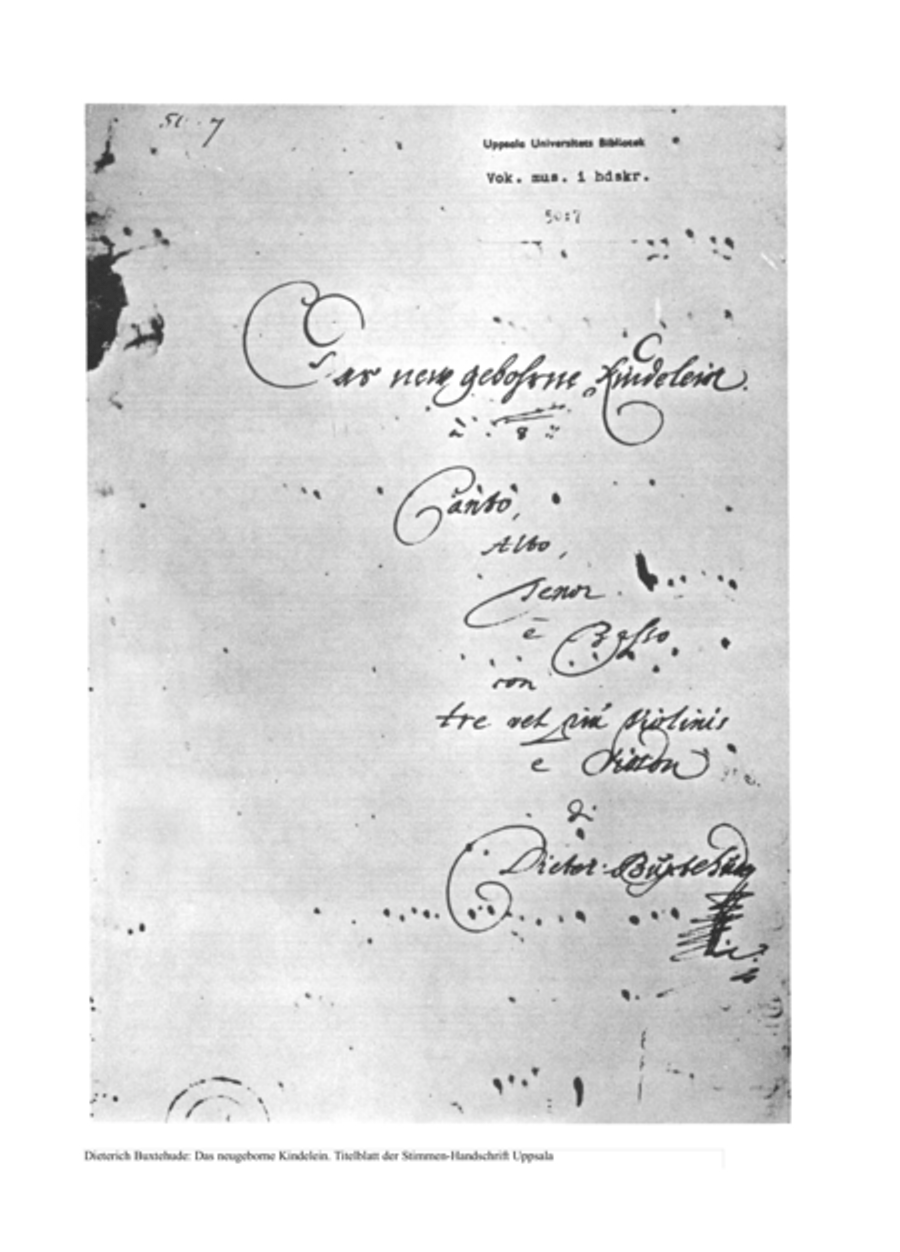 50:7
Uppsala Universitets Bibliotek
Vok. mus. i hdskr.
50:7
Das neue gebohrne Kindelein
à 8
Canto,
Alto,
Tenor
è Basso
con
tre vel più Violinis
e Violon
di
Dieter. Buxtehude
Dieterich Buxtehude: Das neugeborne Kindelein. Titelblatt der Stimmen-Handschrift Uppsala